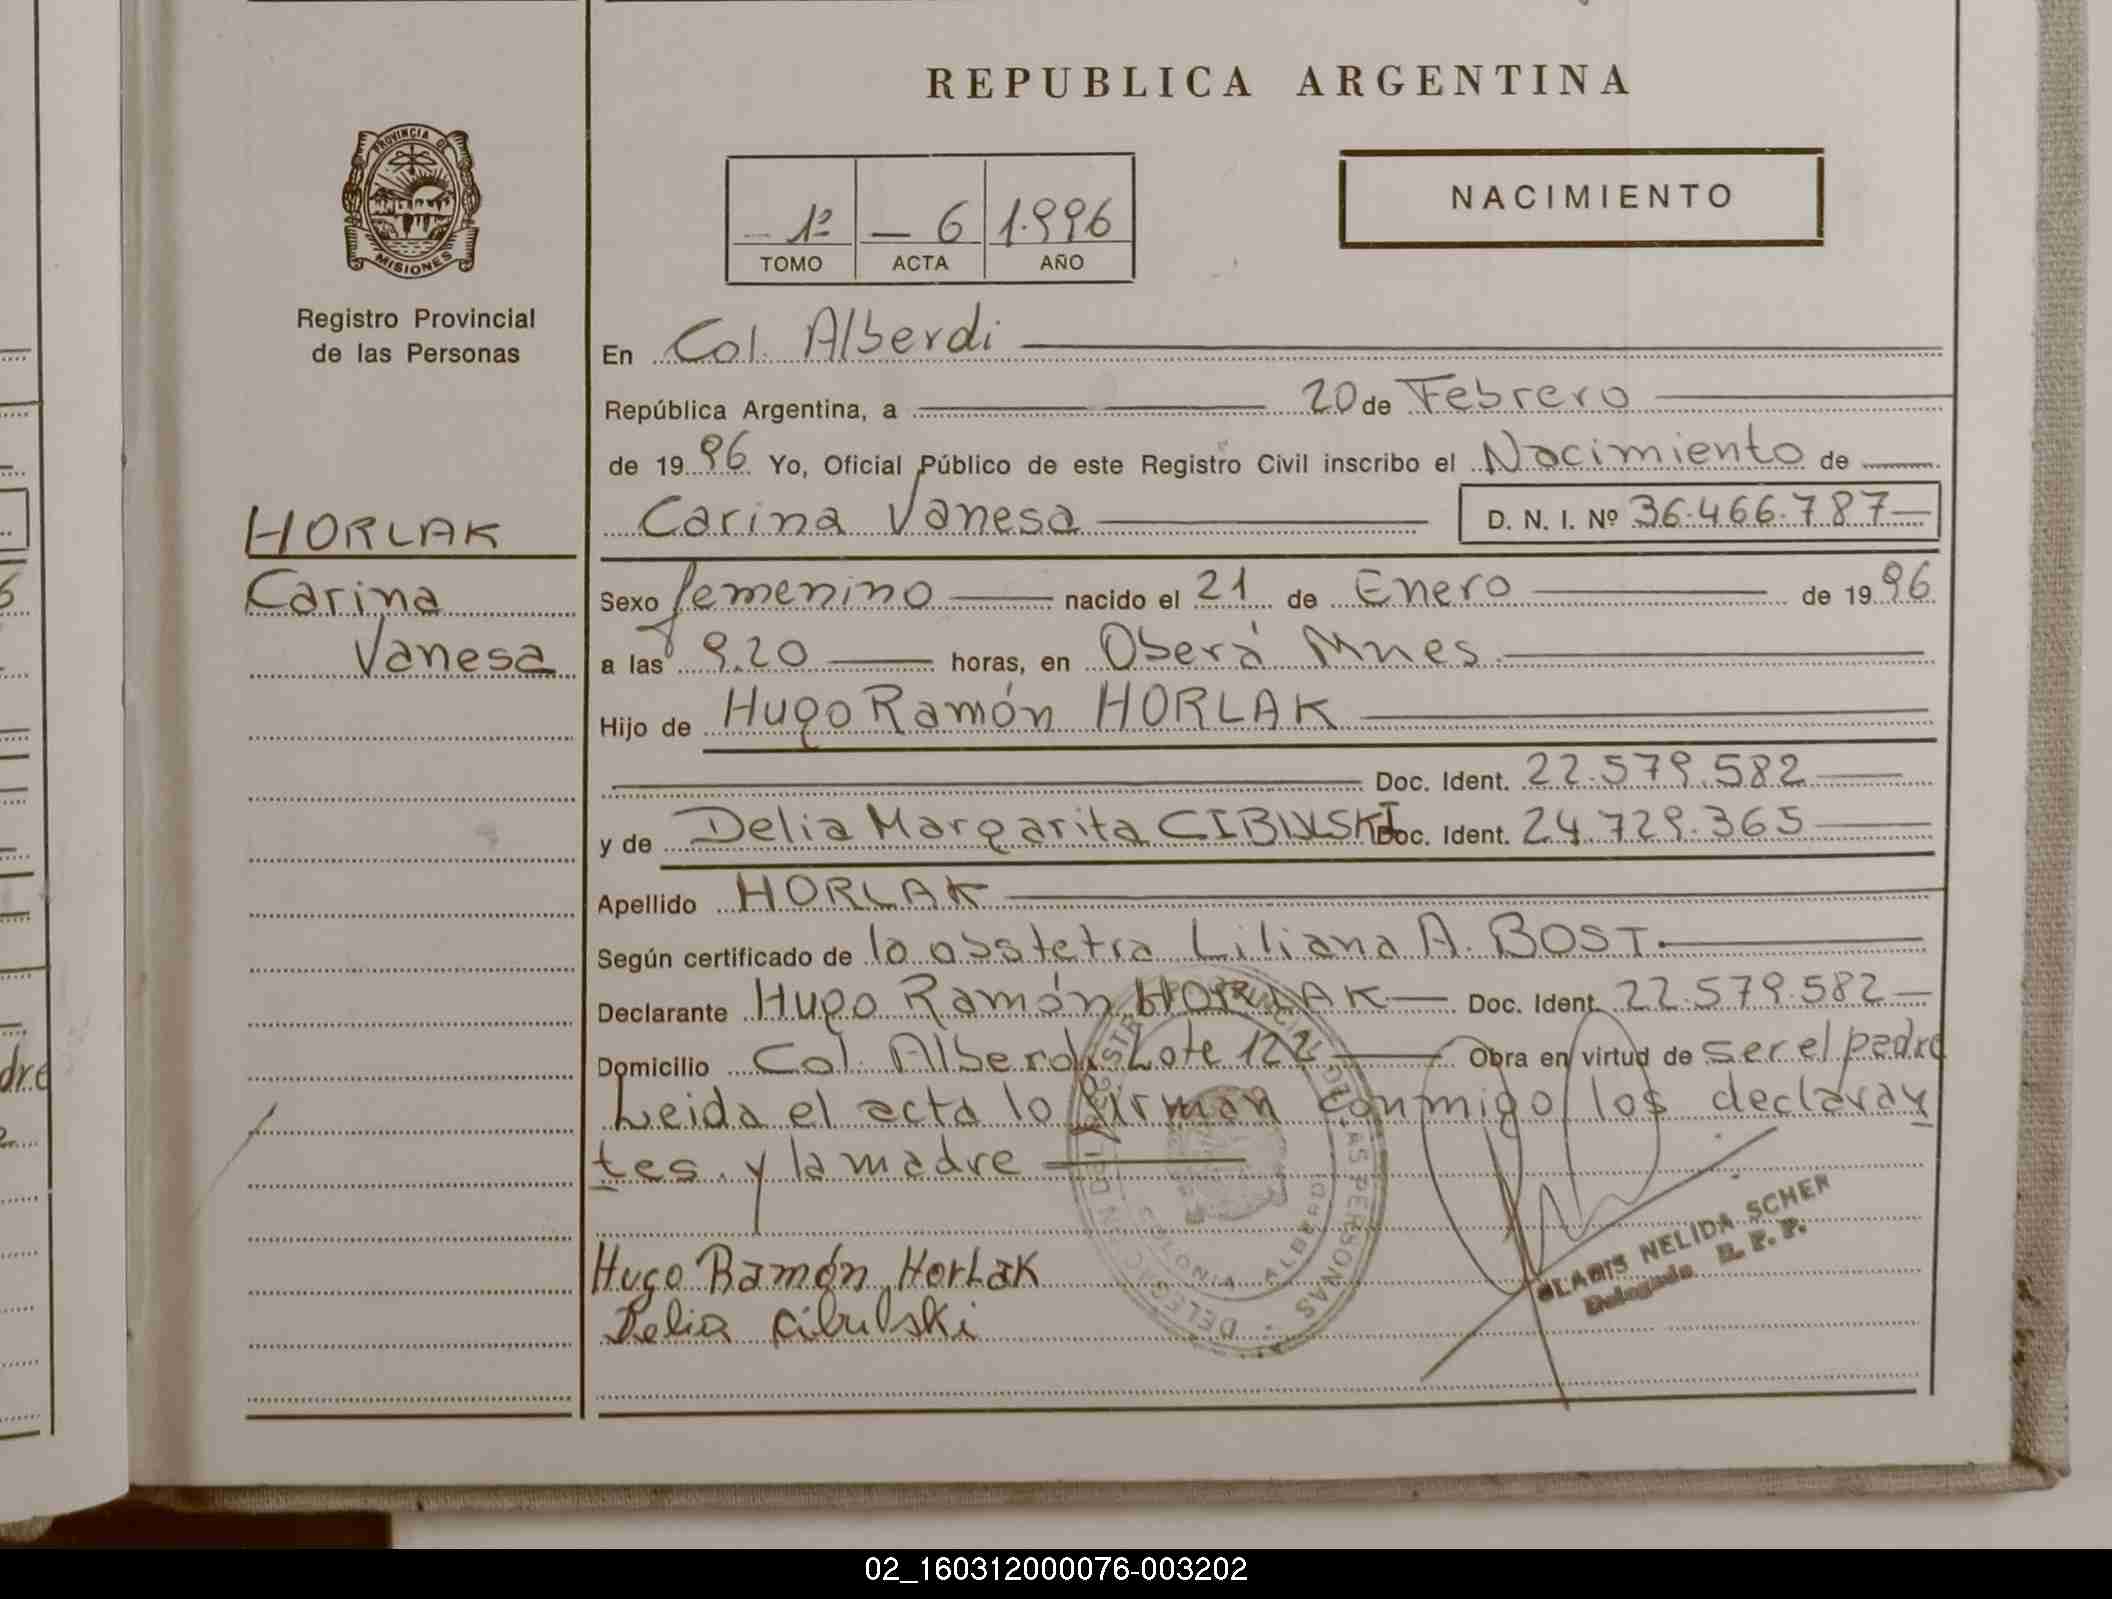 REPUBLICA ARGENTINA
PROVINCIA D
MISIONES
Registro Provincial
de las Personas
NACIMIENTO
- 1º - 6 1.996
TOMO ACTA AÑO
En Col. Alberdi
República Argentina, a 20 de Febrero
de 19 96 Yo, Oficial Público de este Registro Civil inscribo el Nacimiento de
Carina Vanesa D. N. I. Nº 36.466.787
HORLAK
Carina
Vanesa
Sexo femenino nacido el 21 de Enero de 19 96
a las 9.20 horas, en Oberá Mnes.
Hijo de Hugo Ramón HORLAK
Doc. Ident. 22.579.582
y de Delia Margarita CIBULSKI Doc. Ident. 24.729.365
Apellido HORLAK
Según certificado de la obstetra Liliana A. BOST.
Declarante Hugo Ramón HORLAK Doc. Ident. 22.579.582
Domicilio Col. Alberdi Lote 122 Obra en virtud de ser el padre
Leida el acta lo firman conmigo los declaran
tes y la madre
COLONIA ALBERD
DE LAS PERSONAS
GLADIS NELIDA SCHER
Delegada R. P. P.
Hugo Ramón HorLak
Delia Cibulski
dre
02_160312000076-003202